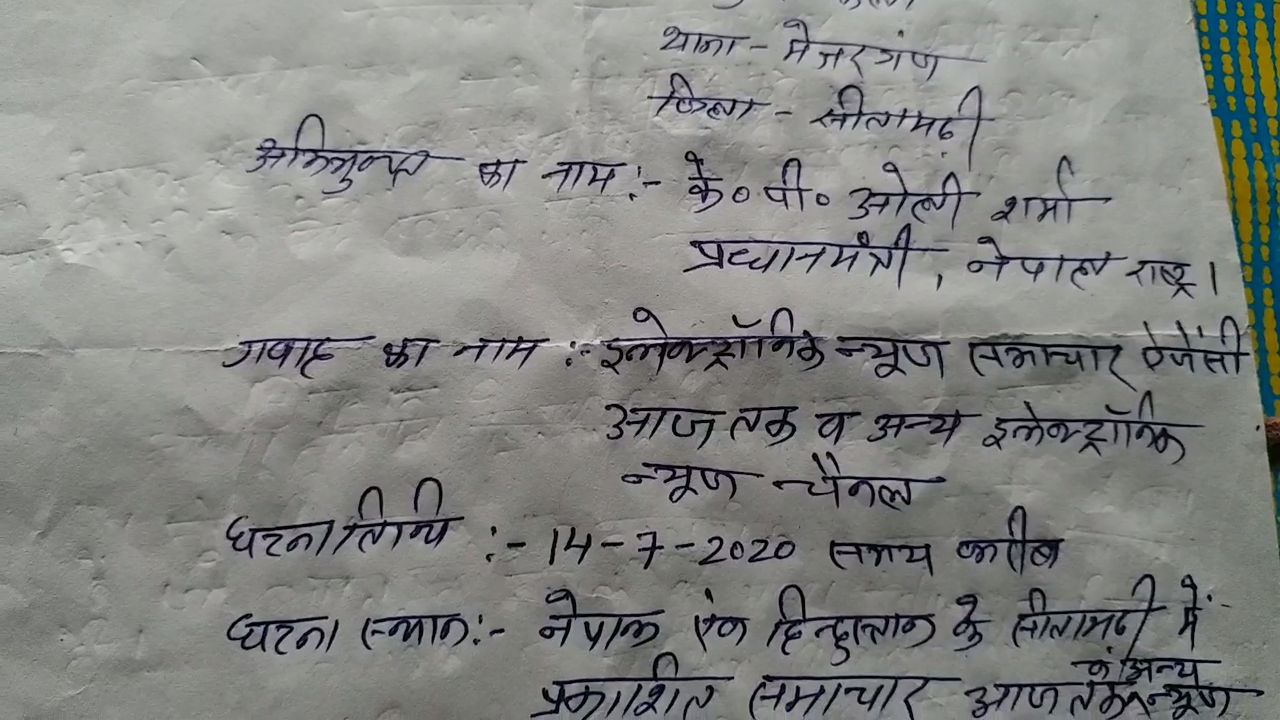 थाना - मेजरगंज
जिला - सीतामढ़ी
अभियुक्त का नाम :- के० पी० ओली शर्मा
प्रधानमंत्री, नेपाल राष्ट्र।
गवाह का नाम :- इलेक्ट्रॉनिक न्यूज समाचार ऐजेंसी
आज तक व अन्य इलेक्ट्रॉनिक
न्यूज चैनल
घटना तिथि :- 14-7-2020 समय करीब
घटना स्थान :- नेपाल एंव हिन्दुस्तान के सीतामढ़ी में
प्रकाशित समाचार आज तक व अन्य न्यूज